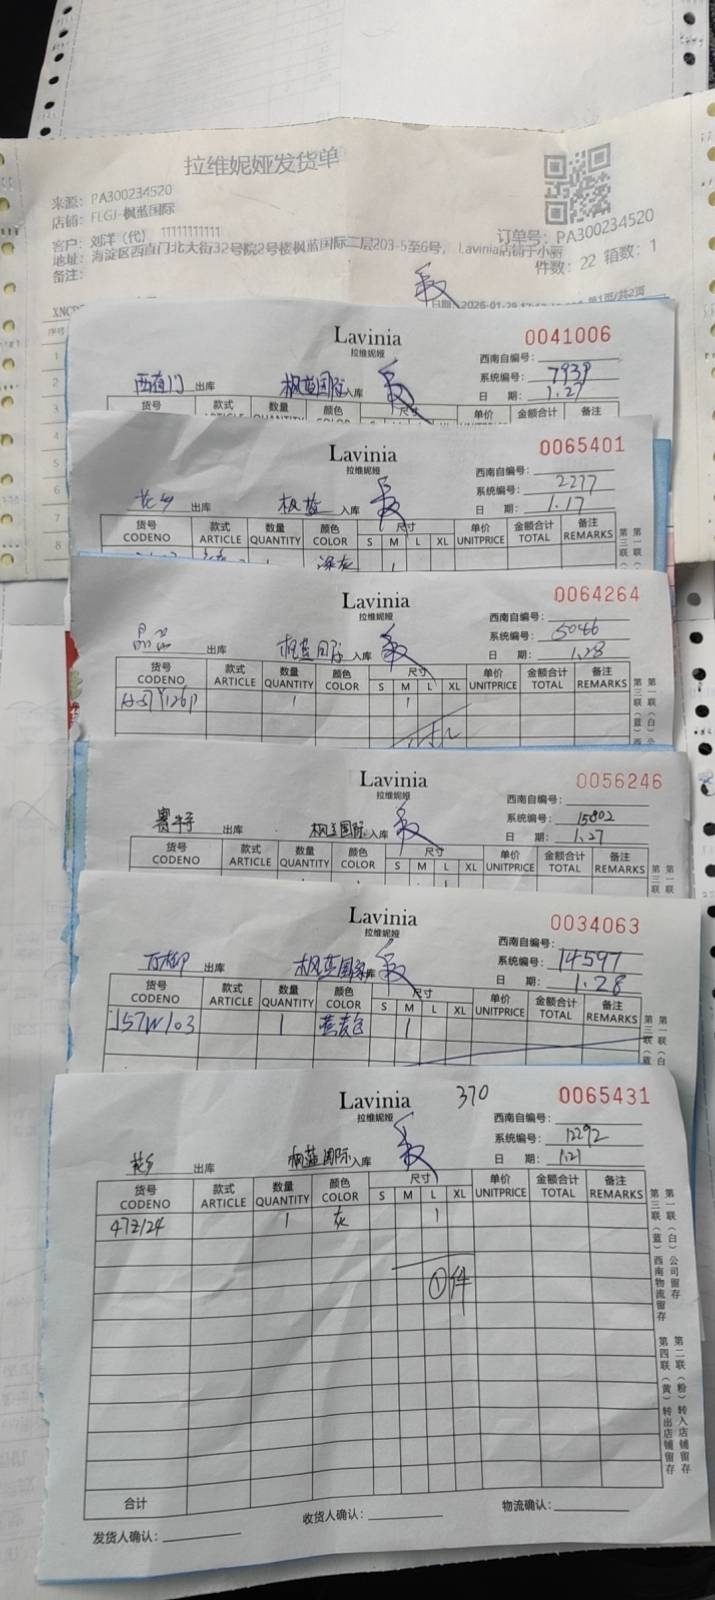 拉维妮娅发货单
来源: PA300234520
店铺: FLGJ-枫蓝国际
客户: 刘洋（代） 11111111111
订单号: PA300234520
地址: 海淀区西直门北大街32号院2号楼枫蓝国际二层203-5至6号， Lavinia店铺于小丽
备注:
件数: 22 箱数: 1
第1页/共2页
Lavinia
拉维妮娅
0041006
西南自编号:
系统编号: 7939
西直门 出库 枫蓝国际 入库
日 期: 1.27
货号 款式 数量 颜色 尺寸 单价 金额合计 备注
Lavinia
拉维妮娅
0065401
西南自编号:
系统编号: 2277
花乡 出库 枫蓝 入库
日 期: 1.17
货号 款式 数量 颜色 尺寸 单价 金额合计 备注
CODENO ARTICLE QUANTITY COLOR S M L XL UNITPRICE TOTAL REMARKS
深灰 1
Lavinia
拉维妮娅
0064264
西南自编号:
系统编号: 5046
晶品 出库 枫蓝国际 入库
日 期: 1.28
货号 款式 数量 颜色 尺寸 单价 金额合计 备注
CODENO ARTICLE QUANTITY COLOR S M L XL UNITPRICE TOTAL REMARKS
1 1
Lavinia
拉维妮娅
0056246
西南自编号:
系统编号: 15802
赛特 出库 枫蓝国际 入库
日 期: 1.27
货号 款式 数量 颜色 尺寸 单价 金额合计 备注
CODENO ARTICLE QUANTITY COLOR S M L XL UNITPRICE TOTAL REMARKS
Lavinia
拉维妮娅
0034063
西南自编号:
系统编号: 14597
万柳 出库 枫蓝国际 入库
日 期: 1.28
货号 款式 数量 颜色 尺寸 单价 金额合计 备注
CODENO ARTICLE QUANTITY COLOR S M L XL UNITPRICE TOTAL REMARKS
J57W103 1 燕麦色 1
Lavinia
拉维妮娅
370
0065431
西南自编号:
系统编号: 12292
花乡 出库 枫蓝国际 入库
日 期: 1.21
货号 款式 数量 颜色 尺寸 单价 金额合计 备注
CODENO ARTICLE QUANTITY COLOR S M L XL UNITPRICE TOTAL REMARKS
47Z124 1 灰 1
①件
第一联（白）公司留存
第三联（蓝）西南物流留存
第二联（粉）转入店铺留存
第四联（黄）转出店铺留存
合计
发货人确认: 收货人确认: 物流确认: